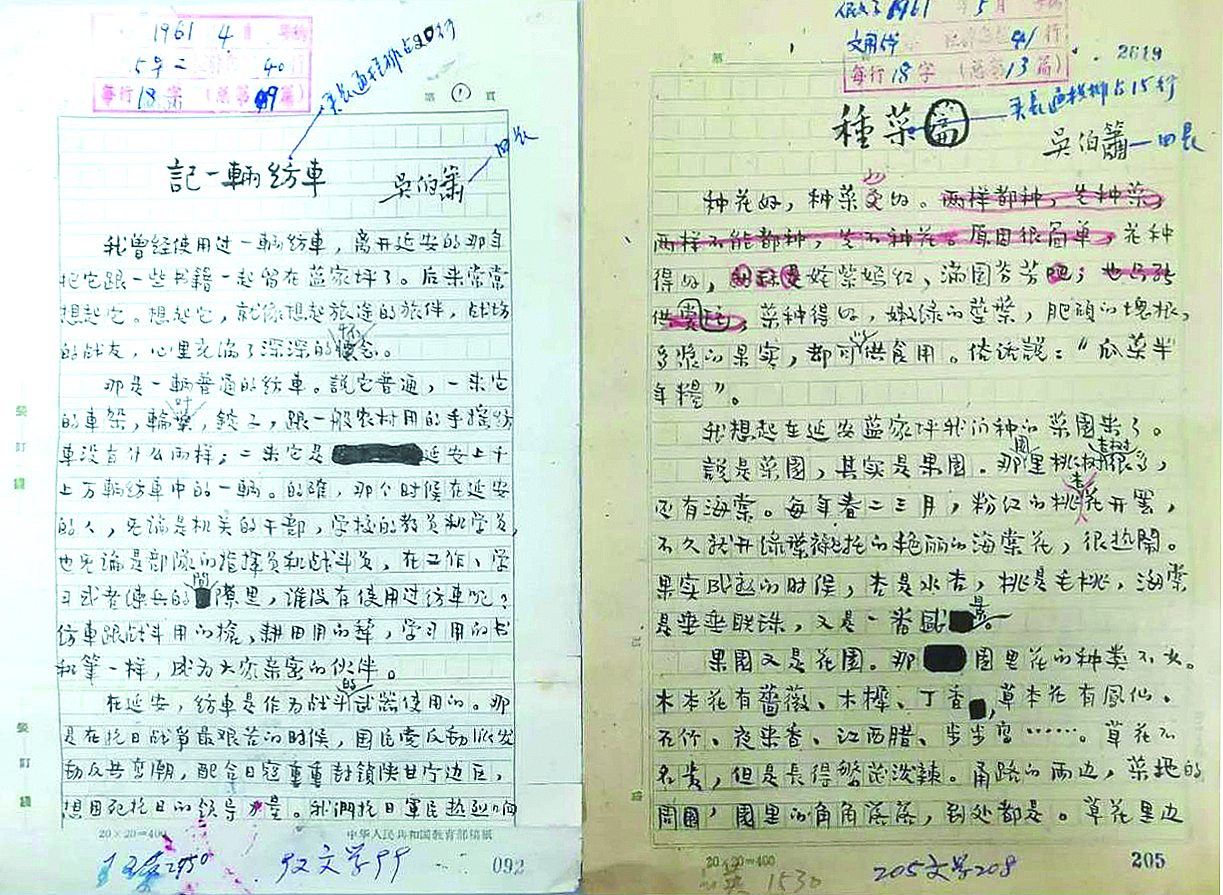 1961 4月
5号二 40行
每行18字（总第 9篇）
第 1 页
記一輛紡車
吴伯箫
我曾经使用过一輛紡車，离开延安的那年
把它跟一些书籍一起留在蓝家坪了。后来常常
想起它。想起它，就像想起旅途的旅伴，战场
的战友，心里充滿了深深的怀念。
那是一輛普通的紡車。說它普通，一来它
的車架，輪叶，錠子，跟一般农村用的手摇紡
車没有什么两样；二来它是延安上千
上万輛紡車中的一輛。的確，那个时候在延安
的人，无論是机关的干部，学校的教员和学员，
也无論是部隊的指揮员和战斗员，在工作、学
习或者练兵的間隙里，谁没有使用过紡車呢？
紡車跟战斗用的槍，耕田用的犂，学习用的书
和筆一样，成为大家亲密的伙伴。
在延安，紡車是作为战斗的武器使用的。那
是在抗日战爭最艰苦的时候，国民党反动派发
动反共高潮，配合日寇重重封鎖陕甘宁边区，
想困死抗日的领导力量。我們抗日軍民热烈响
装訂線
装訂線
20×20=400
中华人民共和国教育部稿紙
92文学99
092
1961 5月
41行
每行18字（总第13篇）
第
2619
種菜篇
吴伯箫
种花好，种菜更好。两样都种，先种菜，
两样不能都种，先不种花。原因很简单，花种
得好，姹紫嫣红、滿园芬芳；
供，菜种得好，嫩绿的莖葉，肥碩的塊根，
多漿的果实，都可供食用。俗话說：“瓜菜半
年糧”。
我想起在延安蓝家坪我们种的菜园来了。
說是菜園，其实是果园。那園里桃樹杏樹很多，
还有海棠。每年春二三月，粉红的桃杏花开罢，
不久就开绿葉襯托的艳丽的海棠花，很热鬧。
果实成熟的时候，杏是水杏，桃是毛桃，海棠
是垂垂联珠，又是一番盛景。
果園又是花園。那園里花的种类不少。
木本花有薔薇、木槿、丁香，草本花有鳳仙、
石竹、夜来香、江西腊、步步高……。草花不
名贵，但是長得繁茂泼辣。甬路的两边，菜地的
周圍，園里的角角落落，到处都是。草花里边
20×20=400
1530
205文学208
205